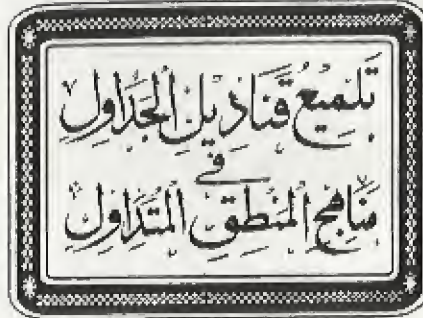 تَلْمِيعُ قَنَادِيلِ الْجَدَاوِلِ
فِي
مَنَاهِجِ الْمَنْطِقِ الْمُتَدَاوِلِ